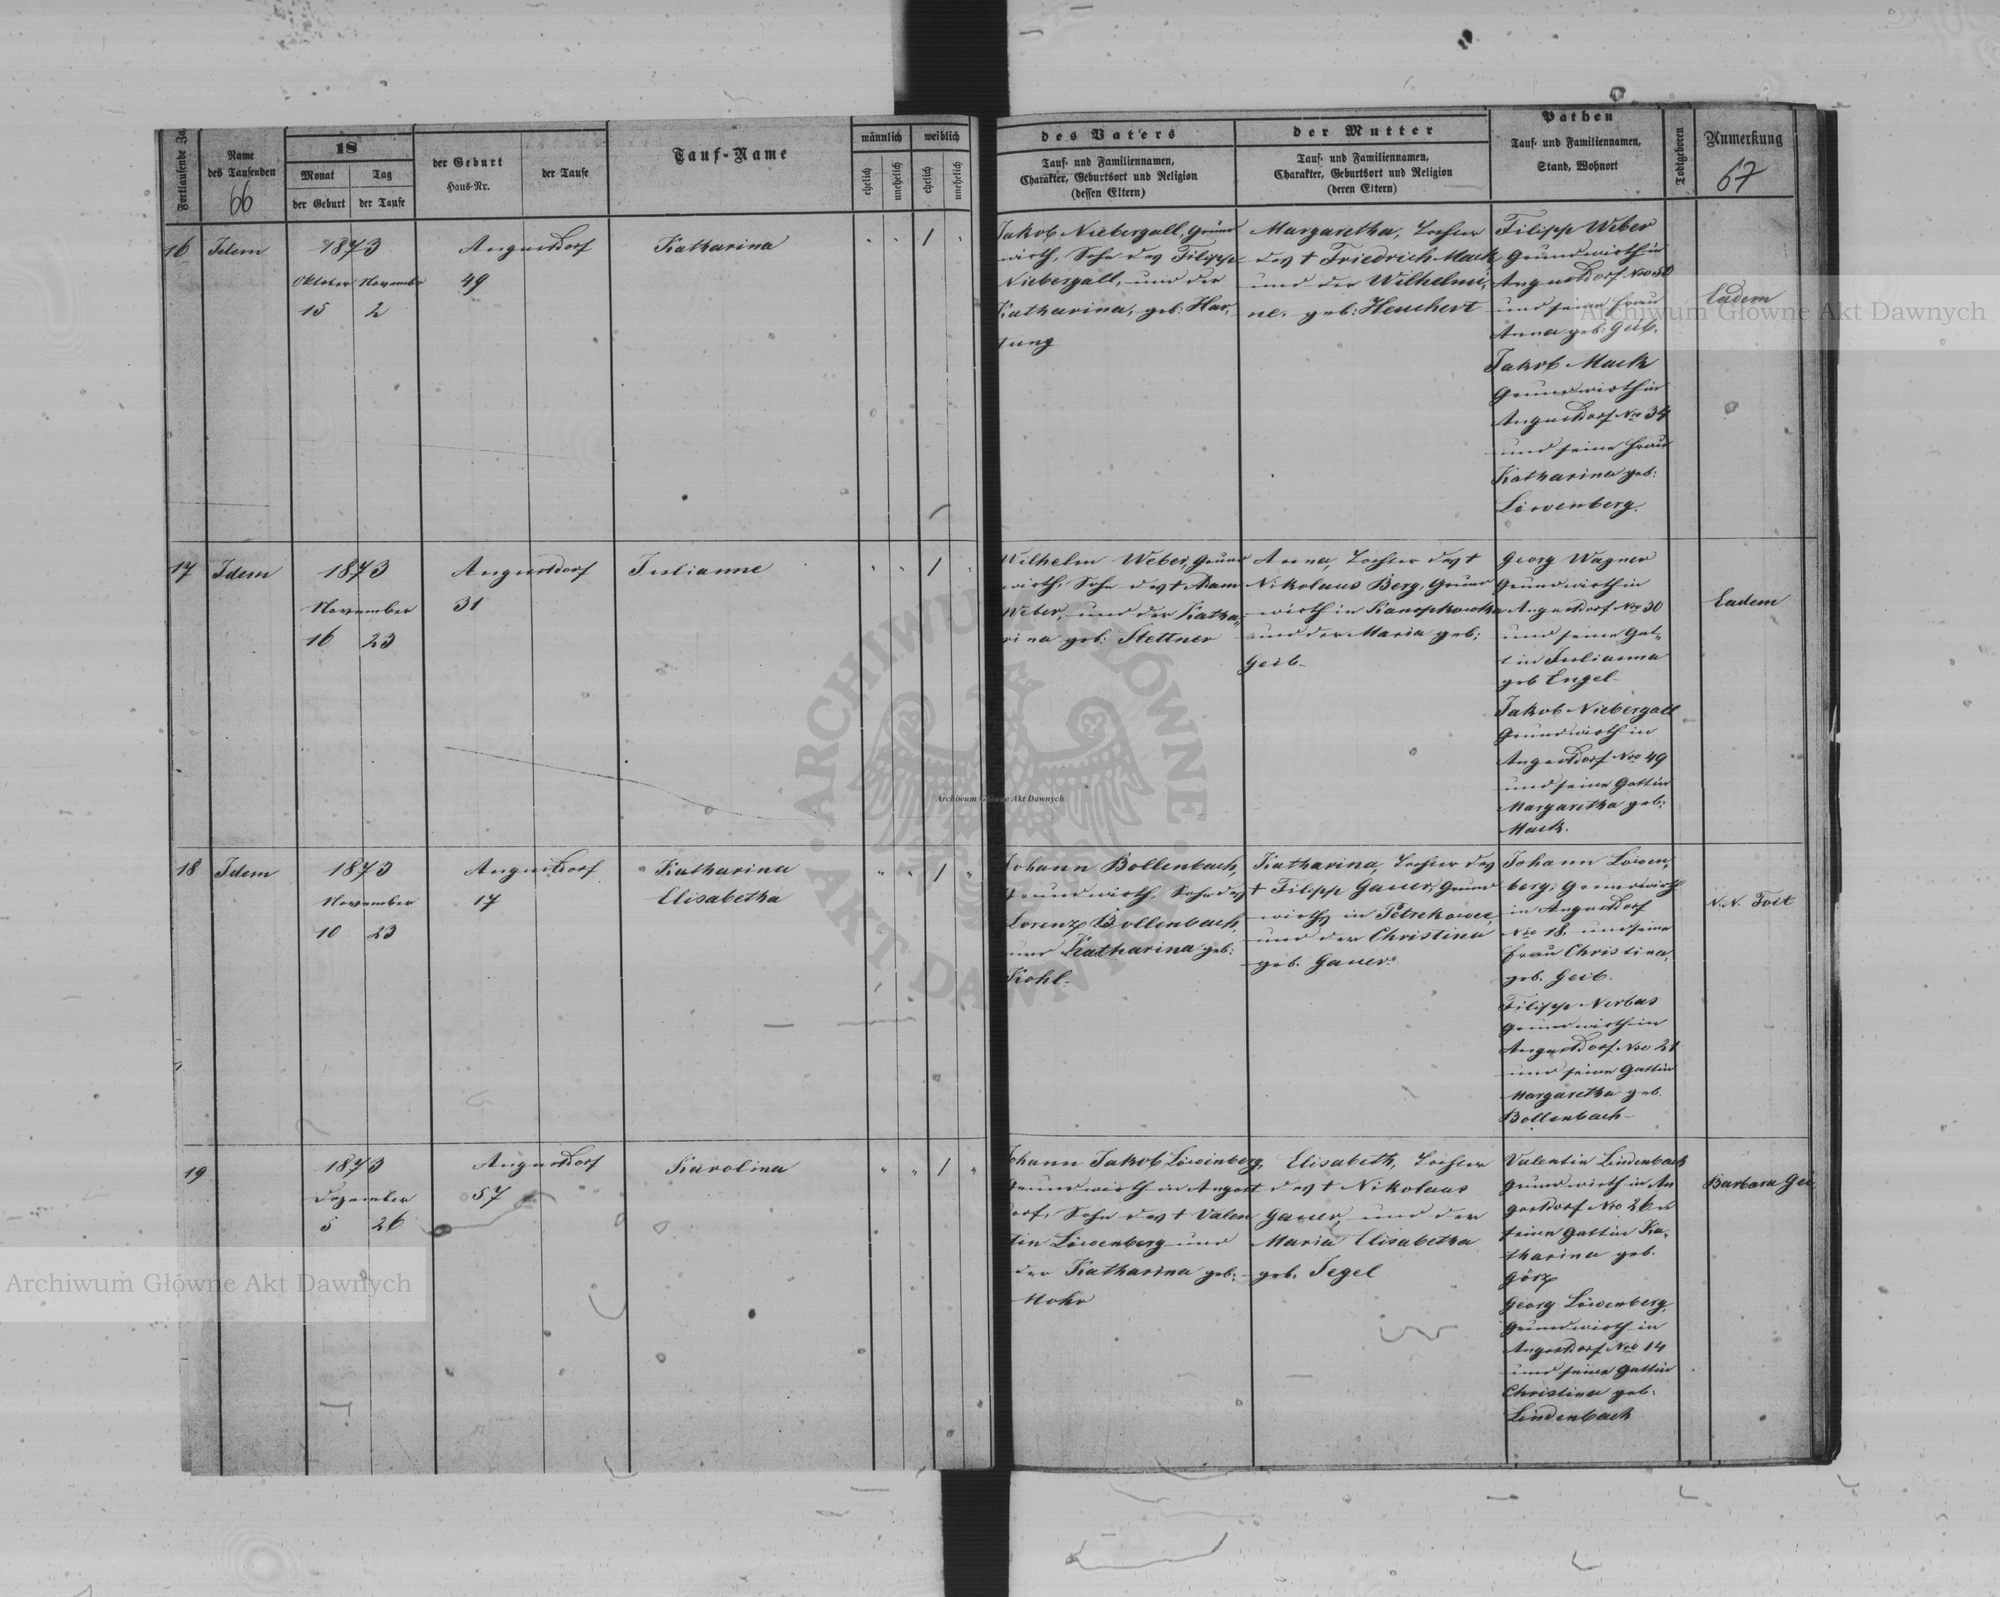 Fortlaufende Za
Name
des Taufenden
66
18
Monat
Tag
der Geburt
der Taufe
der Geburt
Haus-Nr.
der Taufe
Tauf-Name
männlich
weiblich
ehelich
unehelich
ehelich
unehelich
des Vaters
Tauf- und Familiennamen,
Charakter, Geburtsort und Religion
(dessen Eltern)
der Mutter
Tauf- und Familiennamen,
Charakter, Geburtsort und Religion
(deren Eltern)
Pathen
Tauf- und Familiennamen,
Stand, Wohnort
Todtgeboren
Anmerkung
67
16
Idem
1873
Oktober November
15 2
Angustdorf
49
Katharina
1
Jakob Niebergall, Grund
wirth, Sohn des Filipp
Niebergall, und der
Katharina, geb: Har,
tung
Margaretha, Tochter
des † Friedrich Mack
und der Wilhelmi,
ne, geb: Heuchert
Filipp Weber
Grundwirth in
Angustdorf Nro 50
und seine Frau
Anna geb: Geib.
Jakob Mack
Grundwirth in
Angustdorf Nro 34
und seine Frau
Katharina geb:
Löwenberg.
Eadem
17
Idem
1873
November
16 23
Angustdorf
31
Julianne
1
Wilhelm Weber, Grund
wirth, Sohn des † Adam
Weber, und der Katha,,
rina geb: Stettner
Anna, Tochter des †
Nikolaus Berg, Grund
wirth in
und der Maria geb:
Geib
Georg Wagner
Grundwirth in
Angustdorf Nro 30
und seine Gat,,
tin Julianna
geb Engel
Jakob Niebergall
Grundwirth in
Angustdorf Nro 49
und seine Gattin
Margaretha geb:
Mack.
Eadem
18
Idem
1873
November
10 23
Angustdorf
17
Katharina
Elisabetha
1
Johann Bollenbach,
Grundwirth, Sohn des
Lorenz Bollenbach,
und Katharina geb:
Kohl
Katharina, Tochter des
† Filipp Gauer, Grund
wirths in
und der Christina
geb. Gauer
Johann Löwen,
berg, Grundwirth
in Angustdorf
Nro 18, und seine
Frau Christina,
geb. Geib.
Filipp Nerbas
Grundwirth in
Angustdorf Nro 21
und seine Gattin
Margaretha geb.
Bollenbach
N. N. Foit
19
1873
Dezember
5 26
Angustdorf
57
Karolina
1
Johann Jakob Löwenberg,
Grundwirth in Angust
dorf, Sohn des † Valen
tin Löwenberg und
der Katharina geb:
Mohr
Elisabeth, Tochter
des † Nikolaus
Gauer, und der
Maria Elisabetha
geb. Segel
Valentin Lindenbach
Grundwirth in An
gustdorf Nro 26 u
seine Gattin Ka,
tharina geb.
Görz
Georg Löwenberg,
Grundwirth in
Angustdorf Nro 14
und seine Gattin
Christina geb:
Lindenbach
Barbara Gei
Archiwum Główne Akt Dawnych
Archiwum Główne Akt Dawnych
Archiwum Główne Akt Dawnych
ARCHIWUM GŁÓWNE AKT DAWNYCH